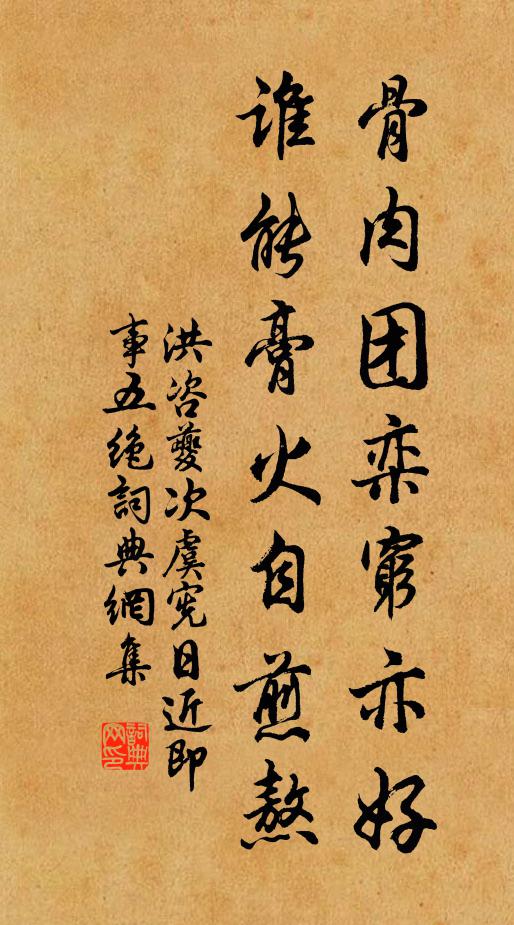 骨肉团栾穷亦好
谁能膏火自煎熬
洪咨夔次虞宪日近即
事五绝詞典網集
詞典网印